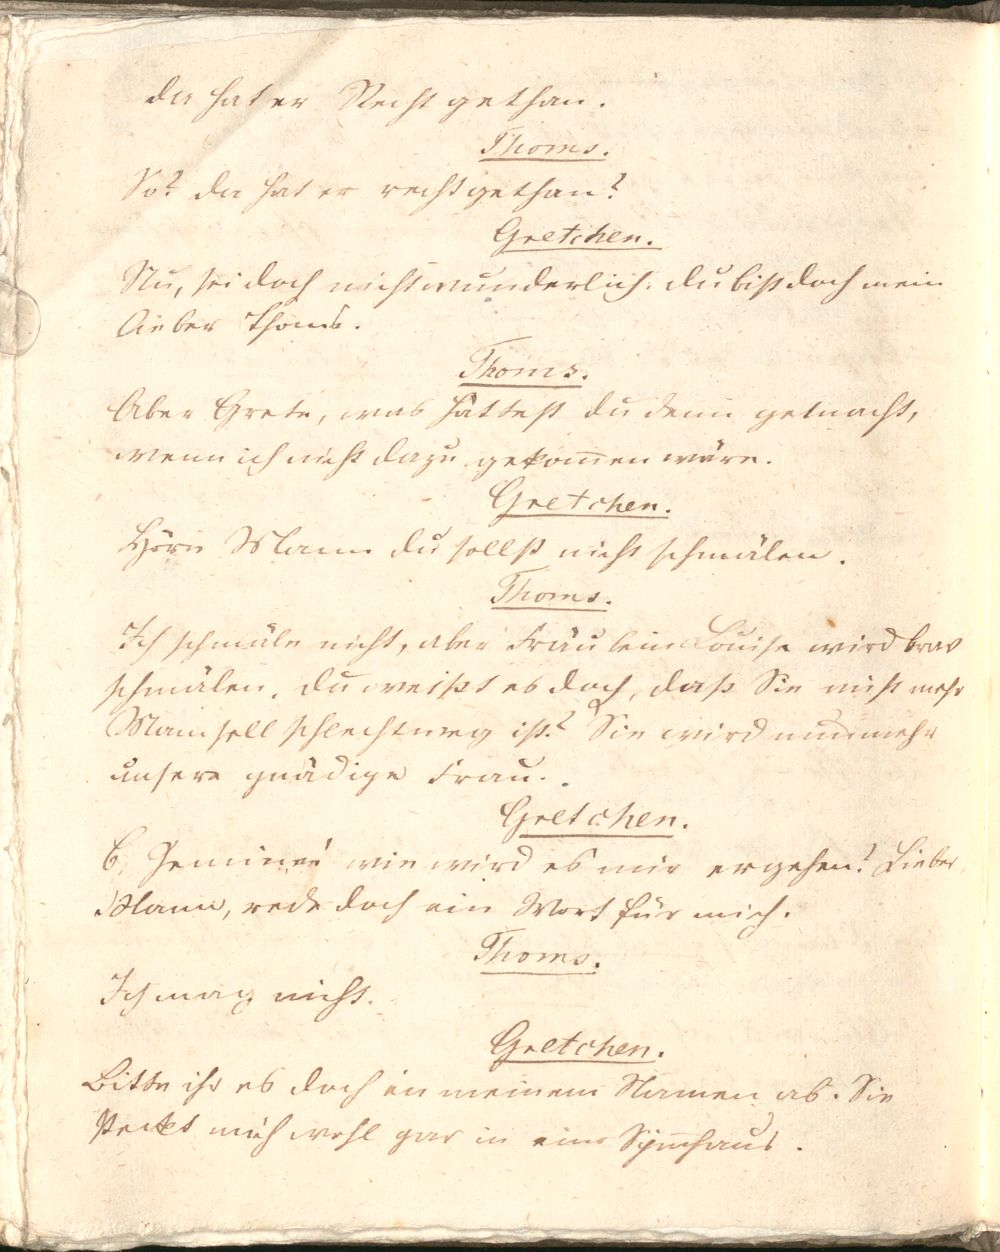 da hat er Recht gethan.
Thoms.
So? da hat er recht gethan?
Gretchen.
Nu, sei doch nicht wunderlich. du bist doch mein
lieber Thoms.
Thoms.
Aber Grete, was hättest du denn gemacht,
wenn ich nicht dazu gekom̄en wäre.
Gretchen.
Höre Mann du sollst nicht schmälen.
Thoms.
Ich schmäle nicht, aber Fräulein Louise wird brav
schmälen. du weißt es doch, daß Sie nicht mehr
Mamsell schlechtweg ist? Sie wird nunmehr
unsere gnädige Frau.
Gretchen.
O, Jeminé wie wird es mir ergehen? Lieber
Mann, rede doch ein Wort für mich.
Thoms.
Ich mag nicht.
Gretchen.
Bitte ihr es doch in meinem Namen ab. Sie
steckt mich wohl gar in ein Spin̄haus.